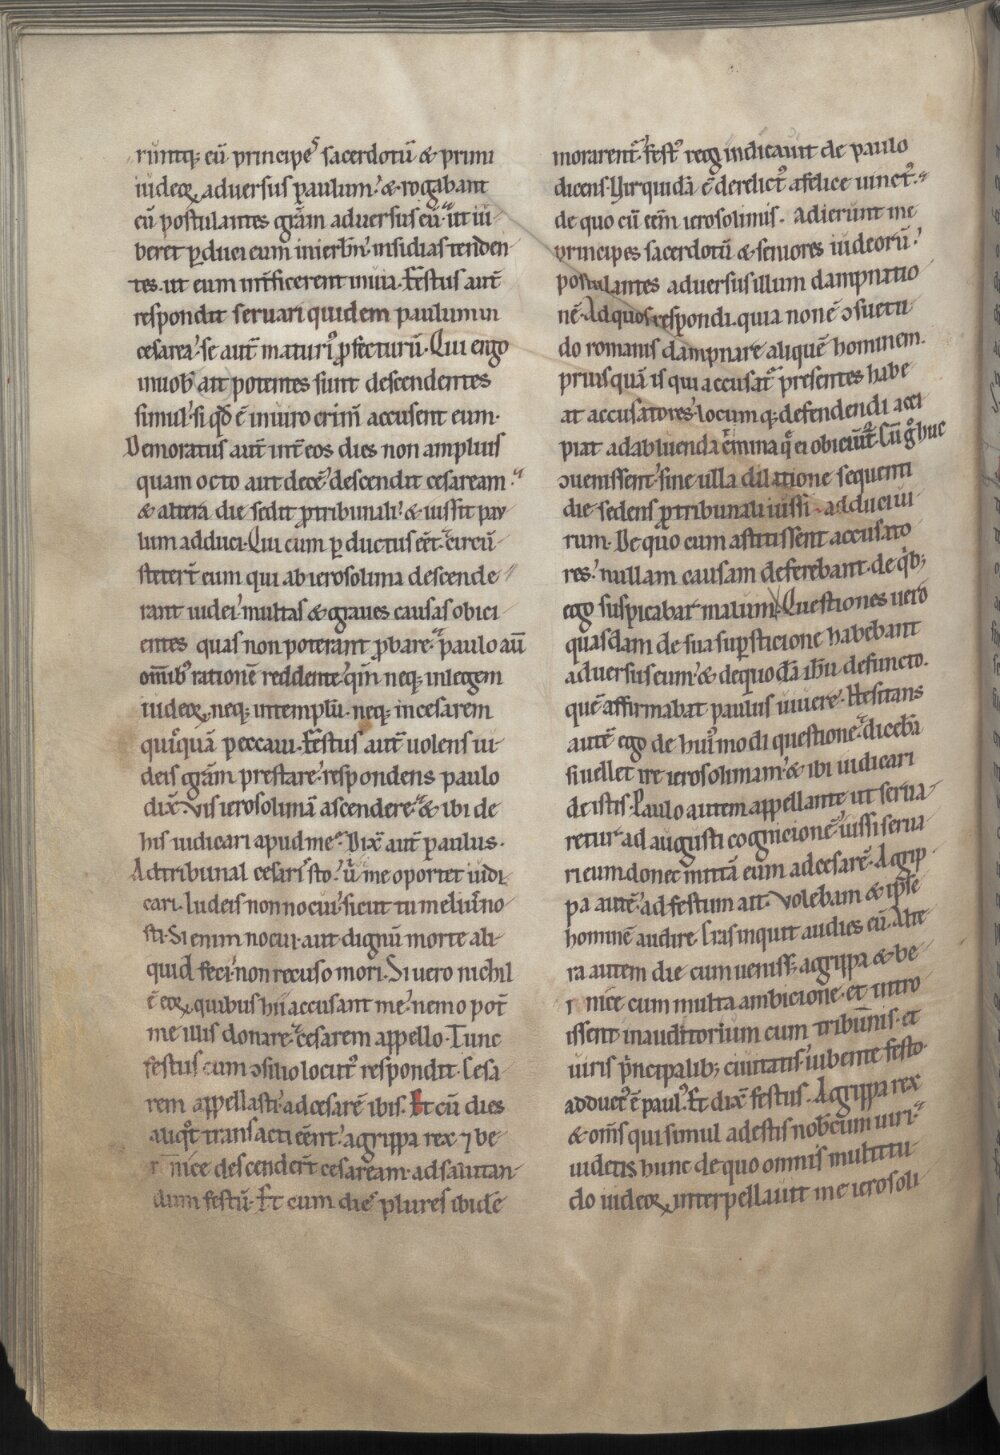 runtq; eū principeˢ sacerdotū & primi
iudeoꝝ aduersus paulum. & rogabant
eū postulantes grām aduersus eū. ut iu-
beret ꝑduci eum in ierłm. insidias tenden
tes. ut eum int̄ficerent in uia. Festus aut̄
respondit seruari quidem paulum in
cesarea. se aut̄ maturi᷒ ꝓfecturū. Qui ergo
in uob᷒ ait potentes sunt descendentes
simul. si qd̄ ē in uiro crim̄ accusent eum.
Demoratus aut̄ int̄ eos dies non amplius
quam octo aut decē. descendit cesaream.
& altera die sedit ꝓ tribunali. & iussit pau
lum adduci. Qui cum ꝑductus eēt. circū-
stitert̄ eum qui ab ierosolima descende-
rant iudei. multas & graues causas obici-
entes quas non poterant ꝓbare. paulo aū
om̄ib᷒ rationē reddente. qm̄ neq; in legem
iudeoꝝ. neq; in templū. neq; in cesarem
quicquā peccaui. Festus aut̄ uolens iu-
deis grām prestare. respondens paulo
dix̄. Vis ierosolimā ascendere. & ibi de
his iudicari apud me. Dix̄ aut̄ paulus.
Ad tribunal cesaris sto. ū me oportet iudi-
cari. Iudeis non nocui. sicut tu meli᷒ no-
sti. Si enim nocui. aut dignū morte ali-
quid feci. non recuso mori. Si uero nichil
ē eoꝝ quibus hii accusant me. nemo pot̄
me illis donare. cesarem appello. Tunc
festus cum ↄsilio locut᷒ respondit. Cesa-
rem appellasti. ad cesarē ibis. Et cū dies
aliqt̄ transacti eēnt. agrippa rex ⁊ be-
r nice descendert̄ cesaream. ad salutan-
dum festū. Et cum dieˢ plures ibidē
morarent̄. Fest᷒ regi indicauit de paulo
dicens. Uir quidā ē derelict᷒ a felice uinct᷒.
de quo cū eēm ierosolimis. adierunt me
principes sacerdotū & seniores iudeorū.
postulantes aduersus illum dampnatio
nē. Ad quos respondi. quia non ē ↄsuetu-
do romanis dampnare aliquē hominem.
priusquā is qui accusat᷑ presentes habe-
at accusatores. locum q; defendendi acci
piat ad abluenda cͥmina q̄ ei obiciūt᷑. Cū gͦ huc
ↄuenissent. sine ulla dilatione sequenti
die sedens ꝓ tribunali iussi adduci ui-
rum. De quo cum astitissent accusato-
res. nullam causam deferebant. de qͥb;
ego suspicabar malum. Questiones uero
quasdam de sua suꝑsticione habebant
aduersus eum. & de quodā ihū defuncto.
quē affirmabat paulus uiuere. Hesitans
autē ego de hui᷒modi questione. dicebā
si uellet ire ierosolimam. & ibi iudicari
de istis. Paulo autem appellante ut serua-
retur ad augusti cognicionē. iussi serua-
ri eum donec mittā eum ad cesarē. Agrip-
pa autē ad festum ait. Volebam & ipse
hominē audire. Cras inquit audies eū. Alte
ra autem die cum uenisset agrippa & be-
r nice cum multa ambicione. et intro
issent in auditorium cum tribunis. et
uiris pͥncipalib; ciuitatis. iubente festo.
adduct᷒ ē paul᷒. Et dix̄ festus. Agrippa rex
& om̄s qui simul adestis nobcum uiri.
uidetis hunc de quo omnis multitu-
do iudeoꝝ interpellauit me ierosoli-